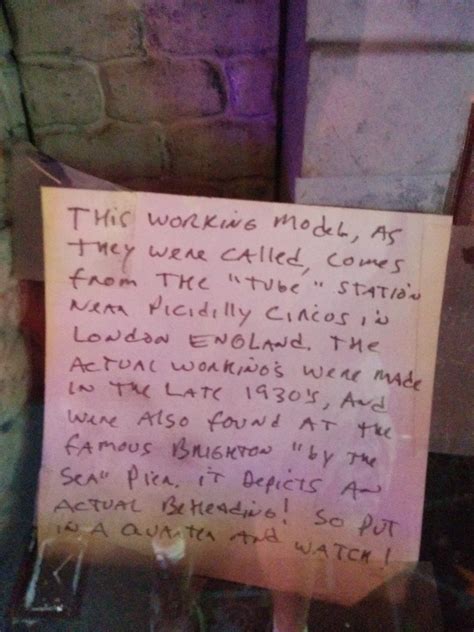 THIS WORKING MODEL, AS
THEY WERE CALLED, COMES
FROM THE "TUBE" STATION
NEAR PICIDILLY CIRCUS IN
LONDON ENGLAND. THE
ACTUAL WORKING'S WERE MADE
IN THE LATE 1930'S, AND
WERE ALSO FOUND AT THE
FAMOUS BRIGHTON "BY THE
SEA" PIER. IT DEPICTS AN
ACTUAL BEHEADING! SO PUT
IN A QUARTER AND WATCH!